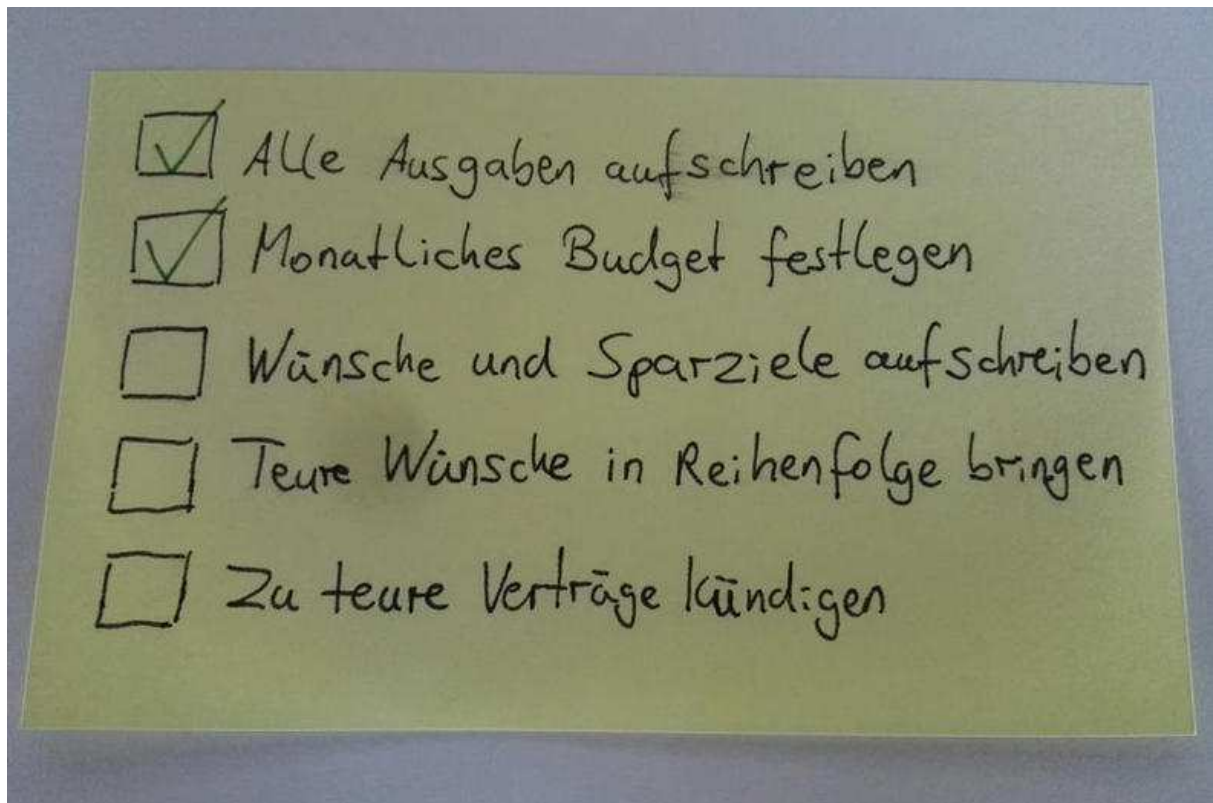 Alle Ausgaben aufschreiben
Monatliches Budget festlegen
Wünsche und Sparziele aufschreiben
Teure Wünsche in Reihenfolge bringen
Zu teure Verträge kündigen